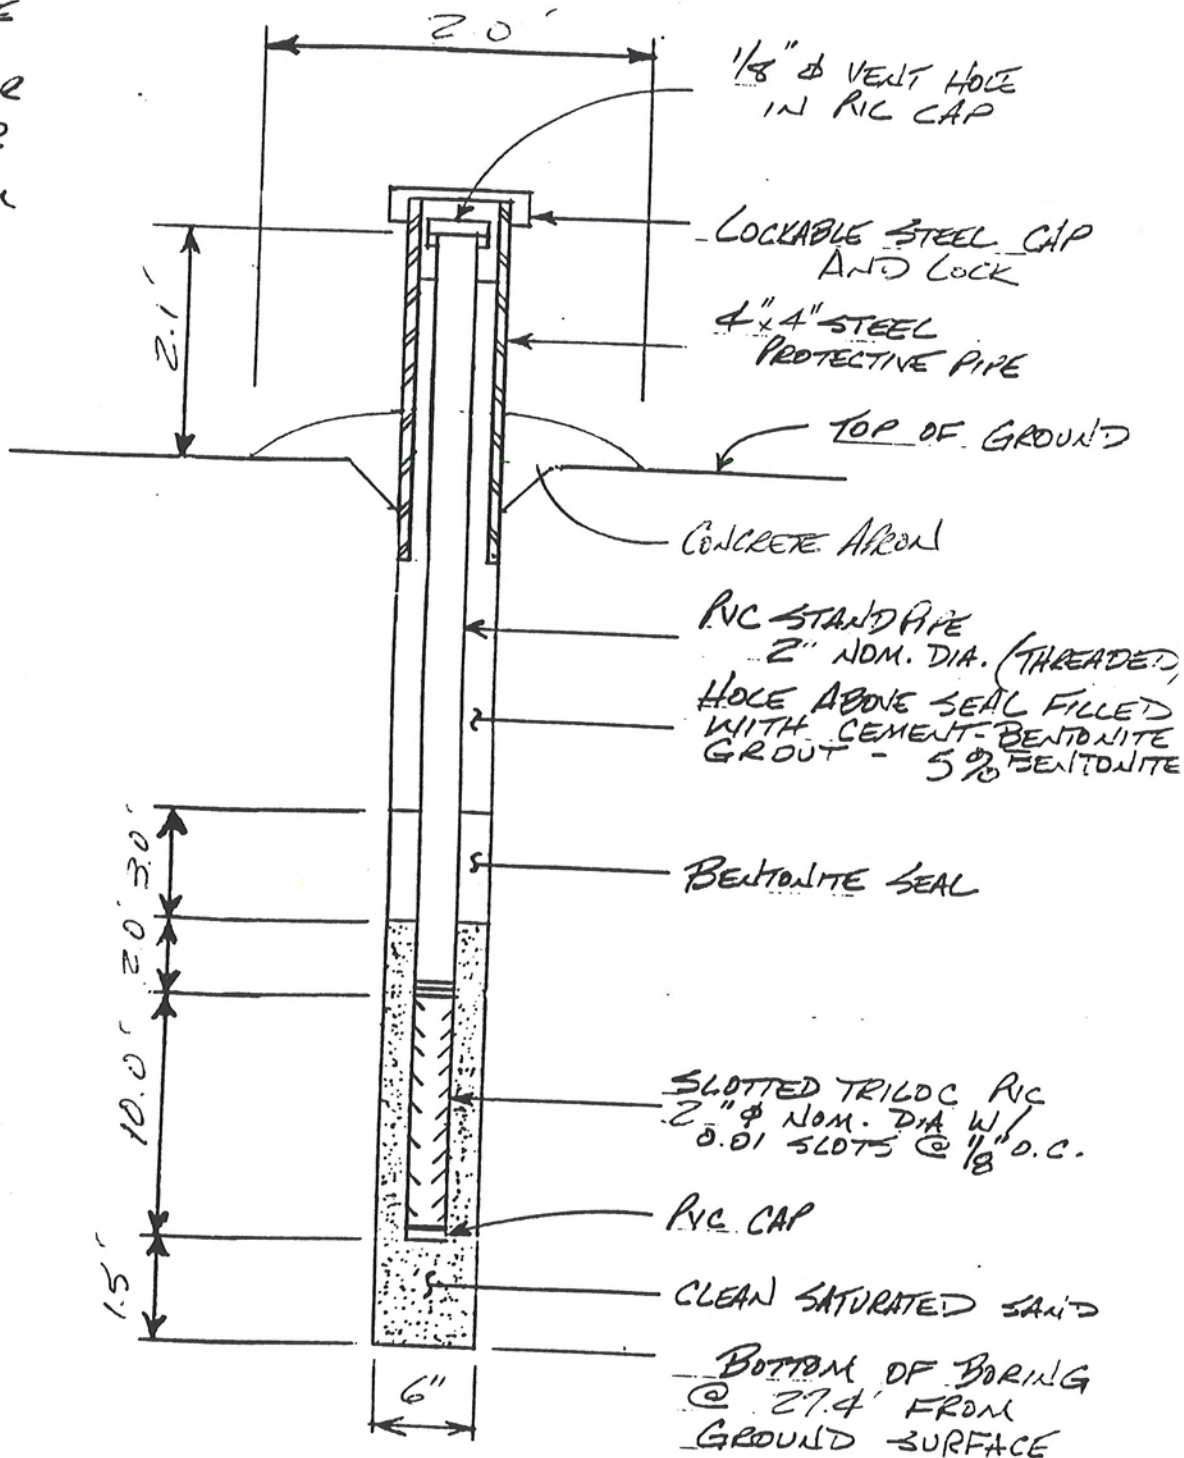 2.0'
1/8" ⌀ VENT HOLE
IN PVC CAP
LOCKABLE STEEL CAP
AND LOCK
2.1'
4"x4" STEEL
PROTECTIVE PIPE
TOP OF GROUND
CONCRETE APRON
PVC STANDPIPE
2" NOM. DIA. (THREADED)
HOLE ABOVE SEAL FILLED
WITH CEMENT-BENTONITE
GROUT - 5% BENTONITE
3.0'
BENTONITE SEAL
2.0'
10.0'
SLOTTED TRILOC PVC
2"⌀ NOM. DIA W/
0.01 SLOTS @ 1/8" O.C.
PVC CAP
1.5'
CLEAN SATURATED SAND
6"
BOTTOM OF BORING
@ 27.4' FROM
GROUND SURFACE